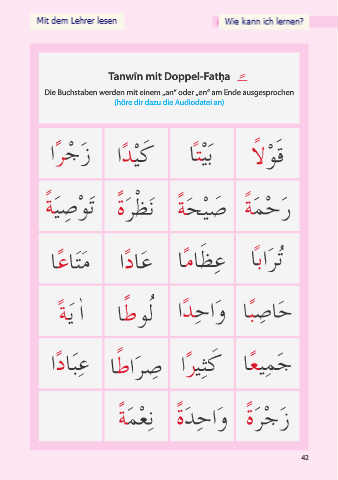 Mit dem Lehrer lesen
Wie kann ich lernen?
Tanwīn mit Doppel-Fatḥa ـً
Die Buchstaben werden mit einem „an“ oder „en“ am Ende ausgesprochen
(höre dir dazu die Audiodatei an)
قَوْلًا بَيْتًا كَيْدًا زَجْرًا
رَحْمَةً صَيْحَةً نَظْرَةً تَوْصِيَةً
تُرَابًا عِظَامًا عَادًا مَتَاعًا
حَاصِبًا وَاحِدًا لُوطًا اٰيَةً
جَمِيعًا كَثِيرًا صِرَاطًا عِبَادًا
زَجْرَةً وَاحِدَةً نِعْمَةً
42